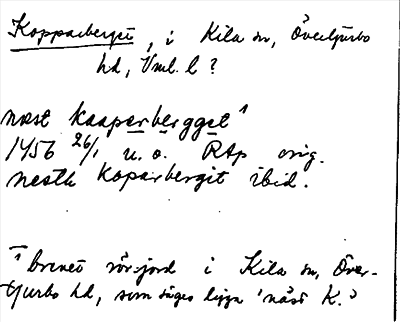 Kopparberget, i Kila sn, Övertjurbo
hd, Vml. l?
næst kaaparbergget 1
1456 26/1 u. o. RAp orig.
nesth koparbergit ibid.
1 brevet rör jord i Kila sn, Över-
tjurbo hd, som säges ligga 'näst K.'